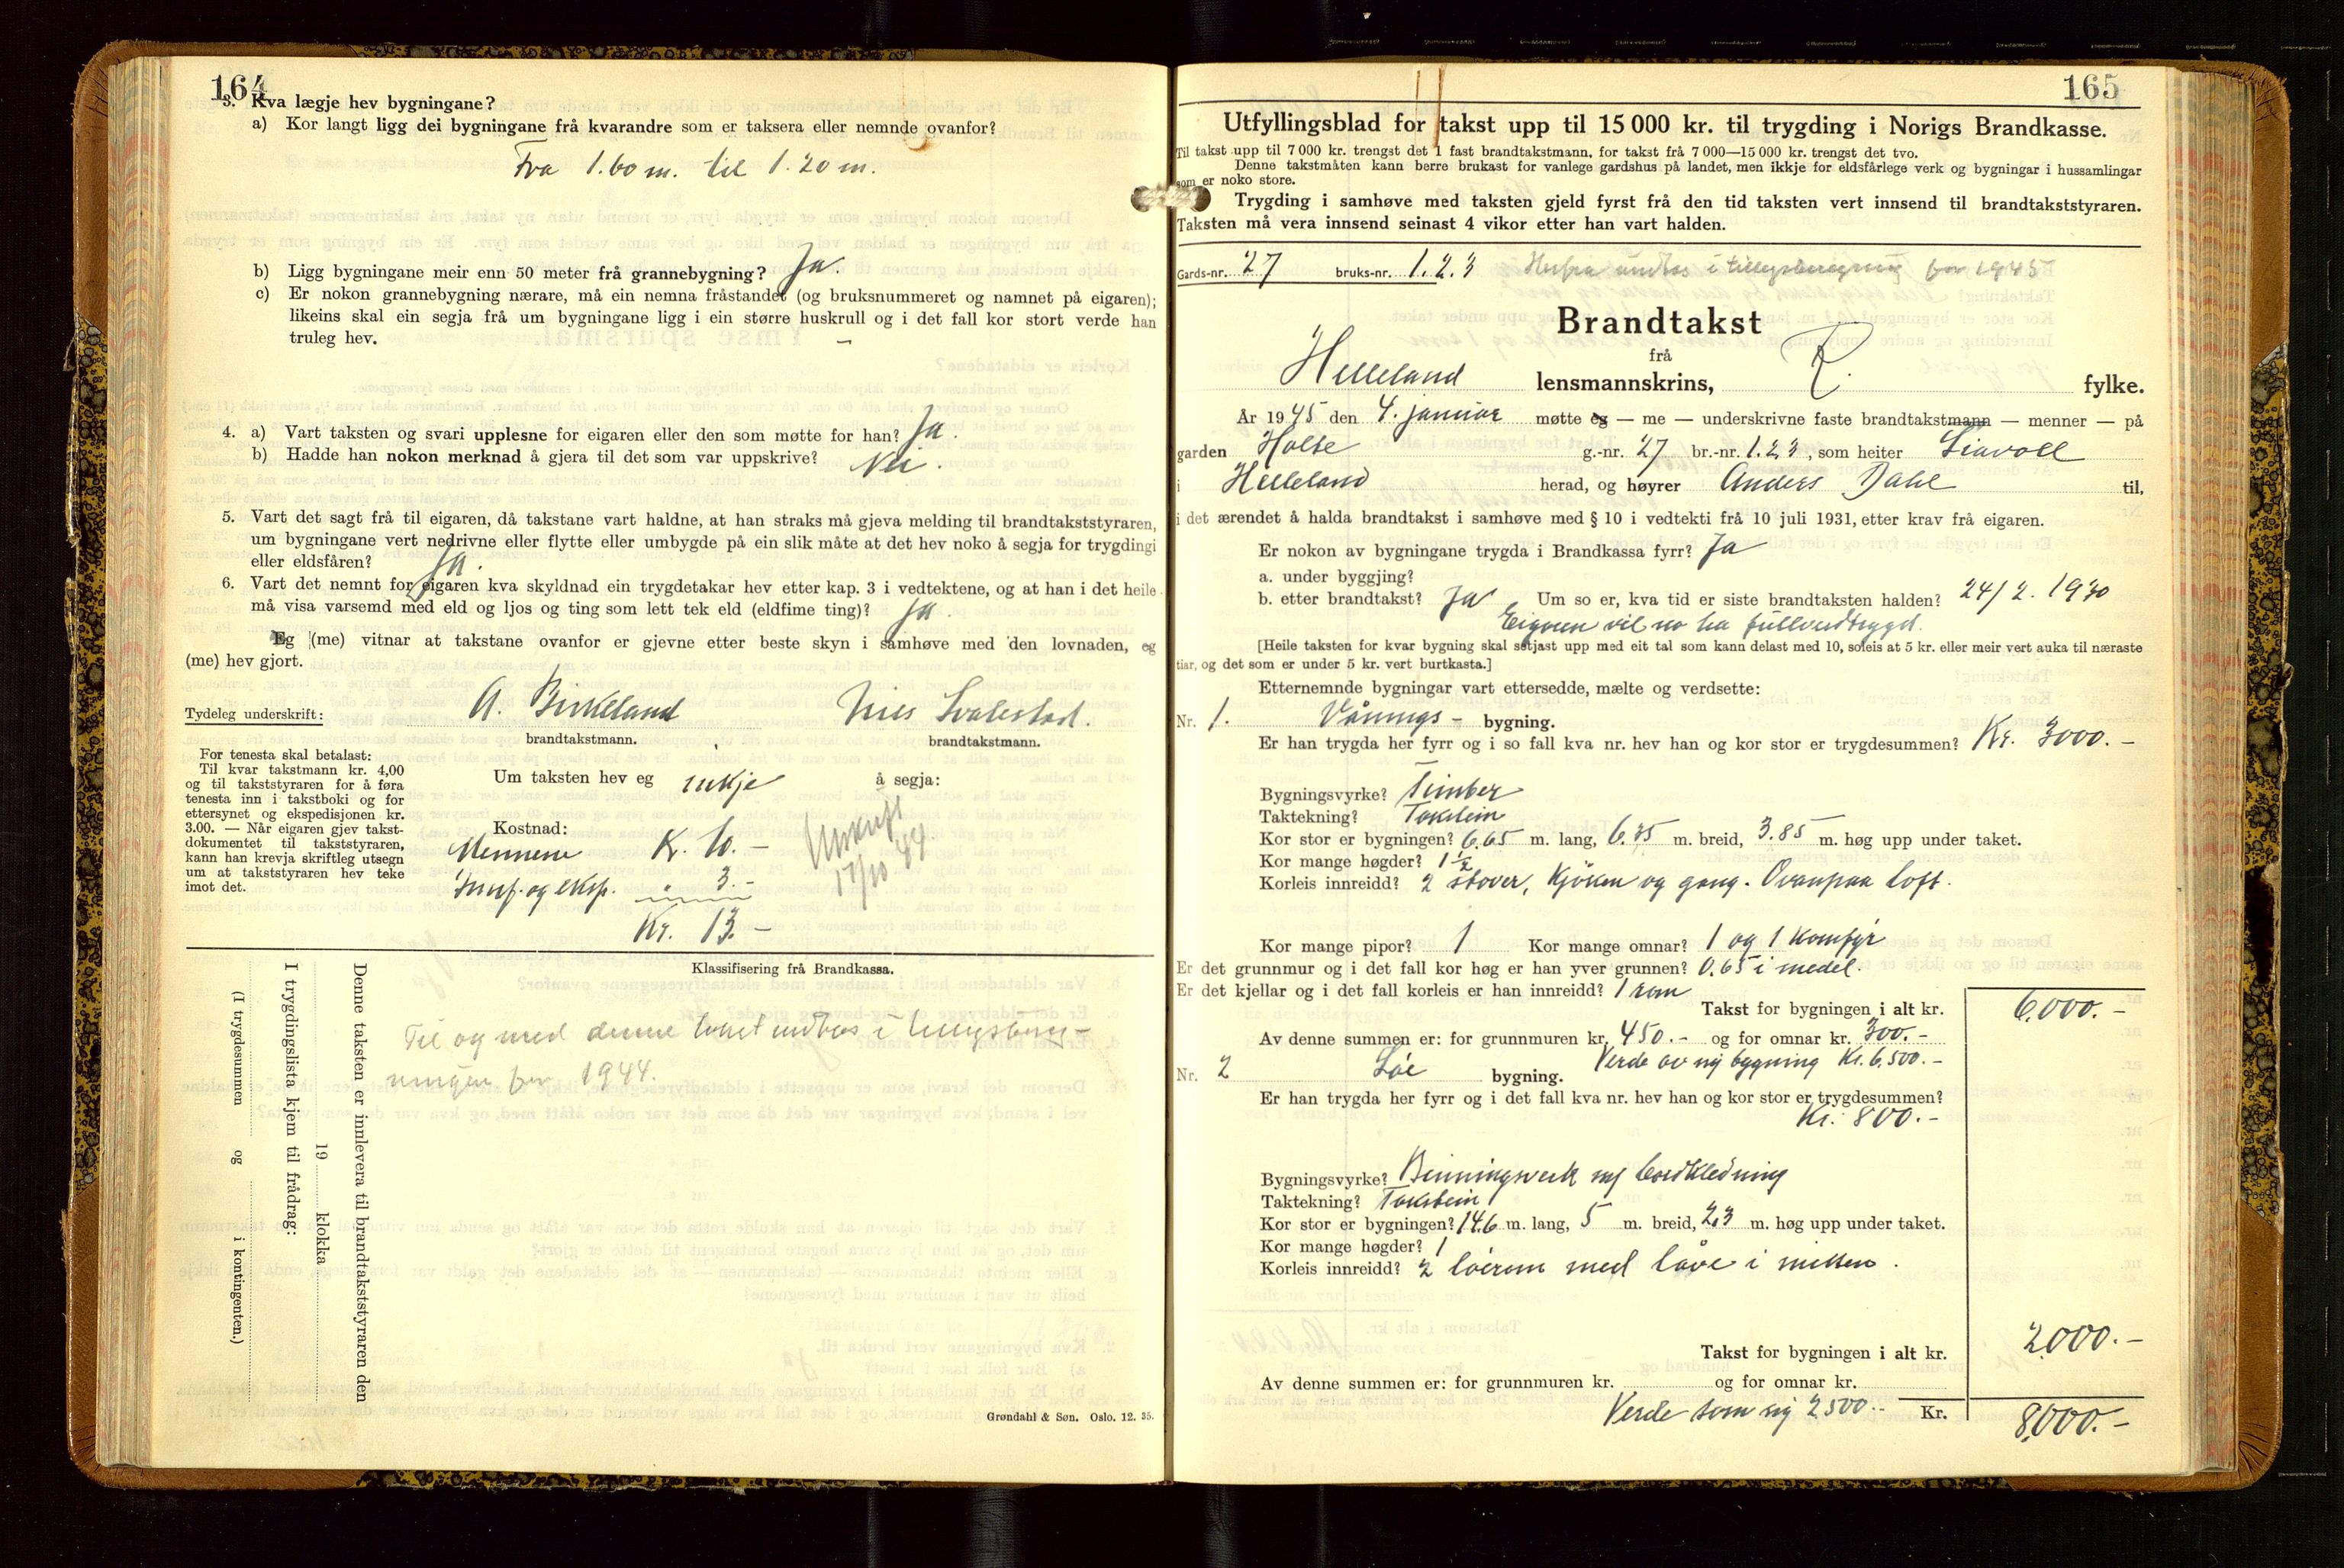 164
3. Kva lægje hev bygningane?
a) Kor langt ligg dei bygningane frå kvarandre som er taksera eller nemnde ovanfor?
Fra 1.60 m. til 1.20 m.
b) Ligg bygningane meir enn 50 meter frå grannebygning? Ja.
c) Er nokon grannebygning nærare, må ein nemna fråstandet (og bruksnummeret og namnet på eigaren);
likeins skal ein segja frå um bygningane ligg i ein større huskrull og i det fall kor stort verde han
truleg hev. –
4. a) Vart taksten og svari upplesne for eigaren eller den som møtte for han? Ja.
b) Hadde han nokon merknad å gjera til det som var uppskrive? Nei.
5. Vart det sagt frå til eigaren, då takstane vart haldne, at han straks må gjeva melding til brandtakststyraren,
um bygningane vert nedrivne eller flytte eller umbygde på ein slik måte at det hev noko å segja for trygdingi
eller eldsfåren? Ja.
6. Vart det nemnt for eigaren kva skyldnad ein trygdetakar hev etter kap. 3 i vedtektene, og at han i det heile
må visa varsemd med eld og ljos og ting som lett tek eld (eldfime ting)? Ja.
Eg (me) vitnar at takstane ovanfor er gjevne etter beste skyn i samhøve med den lovnaden, eg
(me) hev gjort.
Tydeleg underskrift: A. Birkeland
brandtakstmann. brandtakstmann.
For tenesta skal betalast:
Til kvar takstmann kr. 4,00
og til takststyraren for å føra
tenesta inn i takstboki og for
ettersynet og ekspedisjonen kr.
3.00. — Når eigaren gjev takst-
dokumentet til takststyraren,
kann han krevja skriftleg utsegn
um at takststyraren hev teke
imot det.
Um taksten hev eg inkje å segja:
Kostnad:
Mennene Kr. 10.–
Innf. og eksp. " 3.–
Kr. 13.–
Utskrift
17/10 44.
Klassifisering frå Brandkassa.
Til og med denne takst medtas i tilleggsbereg-
ningen for 1944.
Denne taksten er innlevera til brandtakststyraren den
19 klokka
I trygdingslista kjem til frådrag:
(I trygdesummen og i kontingenten.)
Grøndahl & Søn. Oslo. 12. 35.
165
Utfyllingsblad for takst upp til 15 000 kr. til trygding i Norigs Brandkasse.
Til takst upp til 7 000 kr. trengst det 1 fast brandtakstmann, for takst frå 7 000—15 000 kr. trengst det tvo.
Denne takstmåten kann berre brukast for vanlege gardshus på landet, men ikkje for eldsfårlege verk og bygningar i hussamlingar
som er noko store.
Trygding i samhøve med taksten gjeld fyrst frå den tid taksten vert innsend til brandtakststyraren.
Taksten må vera innsend seinast 4 vikor etter han vart halden.
Gards-nr. 27 bruks-nr. 1.2.3 Herfra medtas i tilleggsberegning for 1945
Brandtakst
frå
Helleland lensmannskrins, R. fylke.
År 1945 den 4. januar møtte eg — me — underskrivne faste brandtakstmann — menner — på
garden g.-nr. 27 br.-nr. 1.2.3, som heiter Liavoll
i Helleland herad, og høyrer Anders Dahl til,
i det ærendet å halda brandtakst i samhøve med § 10 i vedtekti frå 10 juli 1931, etter krav frå eigaren.
Er nokon av bygningane trygda i Brandkassa fyrr? Ja
a. under byggjing?
b. etter brandtakst? Ja Um so er, kva tid er siste brandtaksten halden? 24/2. 1930
Eigaren vil no ha fullverdtrygd.
[Heile taksten for kvar bygning skal setjast upp med eit tal som kann delast med 10, soleis at 5 kr. eller meir vert auka til næraste
tiar, og det som er under 5 kr. vert burtkasta.]
Etternemnde bygningar vart ettersedde, mælte og verdsette:
Nr. 1. Vånings– bygning.
Er han trygda her fyrr og i so fall kva nr. hev han og kor stor er trygdesummen? Kr. 3000.–
Bygningsvyrke? Timber
Taktekning? Takstein
Kor stor er bygningen? 6.65 m. lang, 6.35 m. breid, 3.85 m. høg upp under taket.
Kor mange høgder? 1 1/2
Korleis innreidd? 2 stover, kjöken og gang. Ovanpaa loft.
Kor mange pipor? 1 Kor mange omnar? 1 og 1 komfyr
Er det grunnmur og i det fall kor høg er han yver grunnen? 0.65 i medel.
Er det kjellar og i det fall korleis er han innreidd? 1 rom
Takst for bygningen i alt kr. 6.000.–
Av denne summen er: for grunnmuren kr. 450.– og for omnar kr. 300.–
Verde av ny bygning Kr. 6.500.–
Nr. 2 Löe bygning.
Er han trygda her fyrr og i det fall kva nr. hev han og kor stor er trygdesummen?
Kr. 800.–
Bygningsvyrke? Binningsverk m/ bordkledning
Taktekning? Takstein
Kor stor er bygningen? 14.6 m. lang, 5 m. breid, 2.3 m. høg upp under taket.
Kor mange høgder? 1
Korleis innreidd? 2 löerom med låve i mitten.
Takst for bygningen i alt kr. 2.000.–
Av denne summen er: for grunnmuren kr. og for omnar kr.
Verde som ny 2500.– Kr. 8.000.–